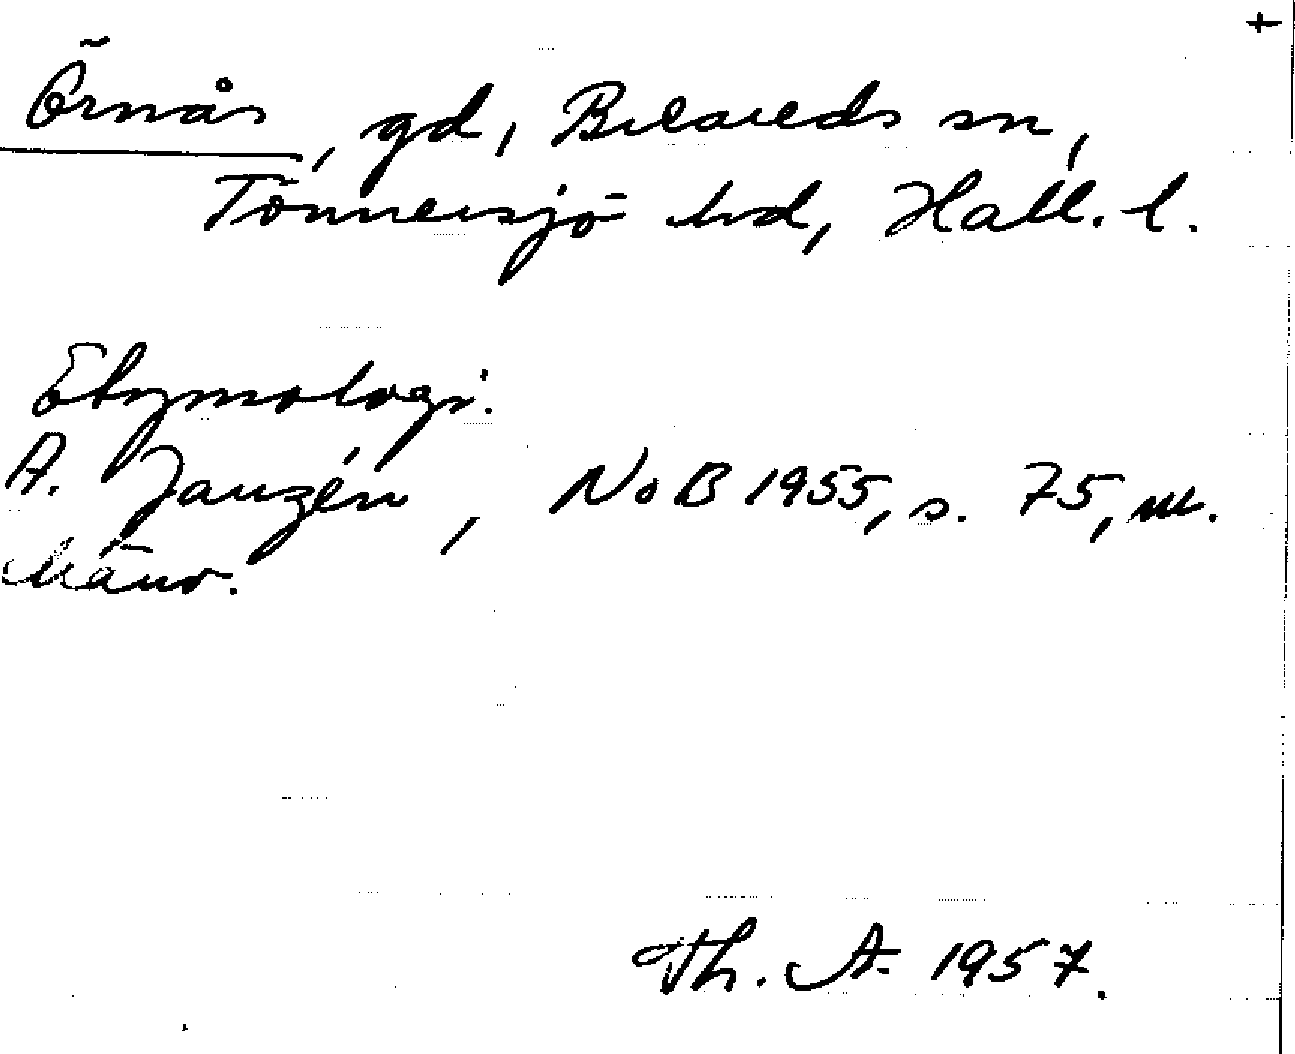 +
Örnås, gd, Breareds sn,
Tönnersjö hd, Hall. l.
Etymologi:
A. Janzén, NoB 1955, s. 75, m.
hänv.
Th. A. 1957.